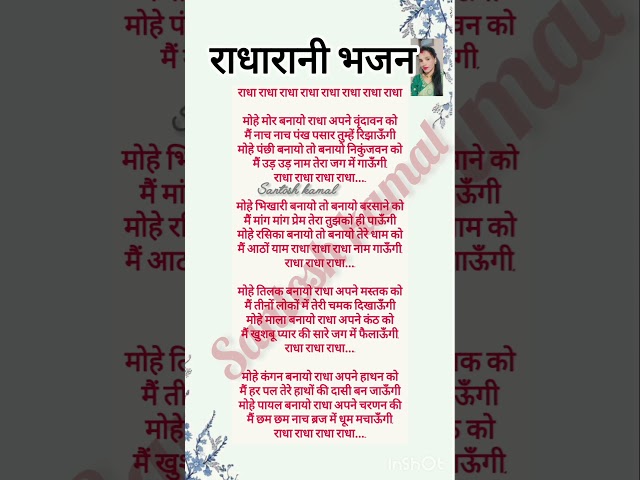 राधारानी भजन
राधा राधा राधा राधा राधा राधा राधा राधा
मोहे मोर बनायो राधा अपने वृंदावन को
मैं नाच नाच पंख पसार तुम्हें रिझाऊँगी
मोहे पंछी बनायो तो बनायो निकुंजवन को
मैं उड़ उड़ नाम तेरा जग में गाऊँगी
राधा राधा राधा राधा....
Santosh kamal
मोहे भिखारी बनायो तो बनायो बरसाने को
मैं मांग मांग प्रेम तेरा तुझको ही पाऊँगी
मोहे रसिका बनायो तो बनायो तेरे धाम को
मैं आठों याम राधा राधा राधा नाम गाऊँगी
राधा राधा राधा....
मोहे तिलक बनायो राधा अपने मस्तक को
मैं तीनों लोकों में तेरी चमक दिखाऊँगी
मोहे माला बनायो राधा अपने कंठ को
मैं खुशबू प्यार की सारे जग में फैलाऊँगी
राधा राधा राधा....
मोहे कंगन बनायो राधा अपने हाथन को
मैं हर पल तेरे हाथों की दासी बन जाऊँगी
मोहे पायल बनायो राधा अपने चरणन की
मैं छम छम नाच ब्रज में धूम मचाऊँगी
राधा राधा राधा राधा....
Santosh kamal
InShOt